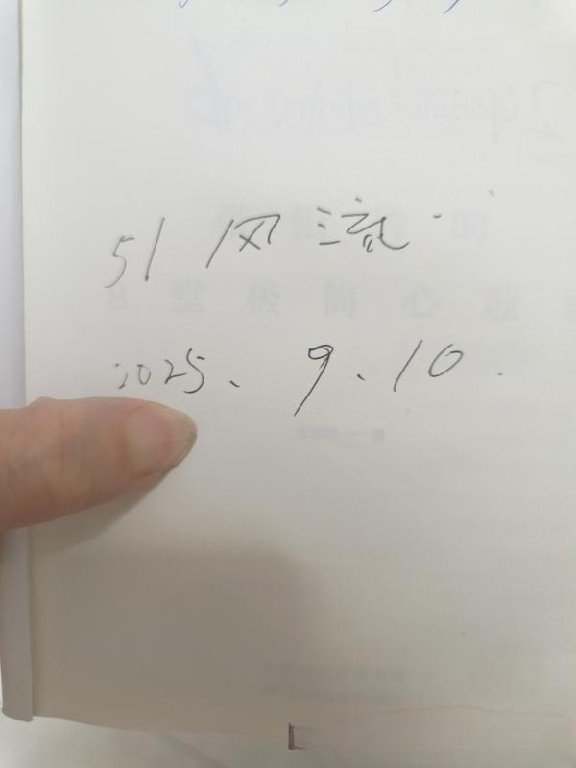 51 风流.
2025、9、10.